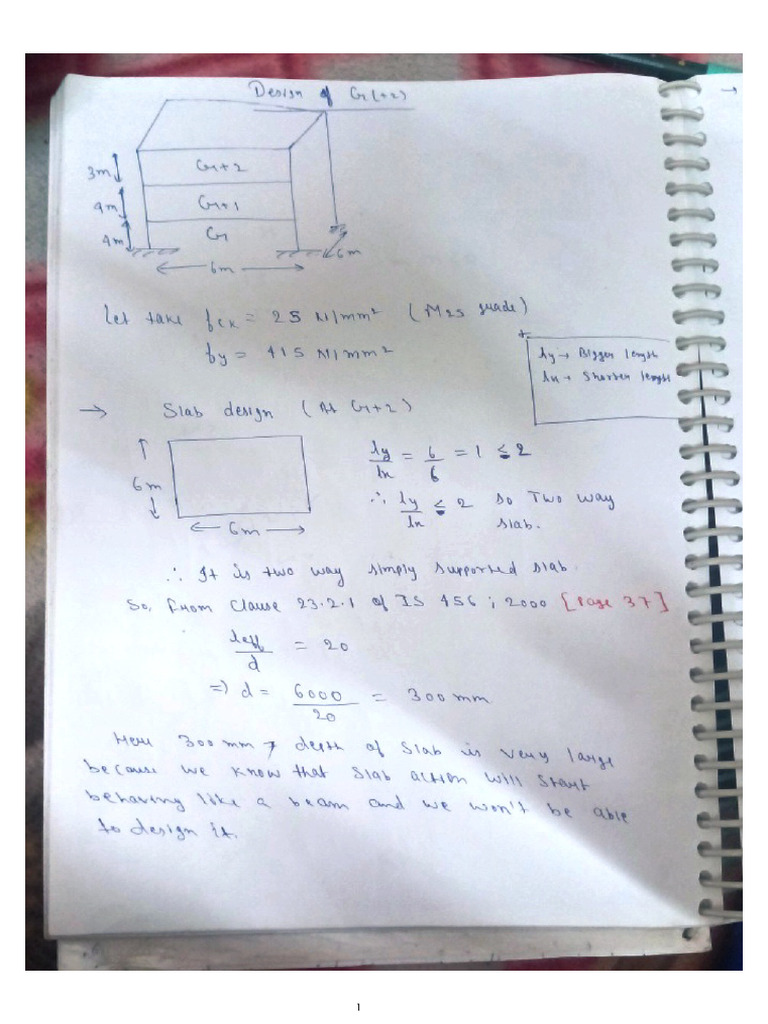 Design of G(+2)
G+2
3m
G+1
4m
G
4m
6m
6m
Let take fck = 25 N/mm² (M25 grade)
fy = 415 N/mm²
ly → Bigger length
lx → Shorter length
→ Slab design (At G+2)
6m
6m
ly/lx = 6/6 = 1 ≤ 2
∴ ly/lx ≤ 2 so Two way
slab.
∴ It is two way simply supported slab.
So, From clause 23.2.1 of IS 456 ; 2000 [Page 37]
leff/d = 20
⇒ d = 6000/20 = 300 mm
Here 300 mm, depth of slab is very large
because we know that slab action will start
behaving like a beam and we won't be able
to design it.
1